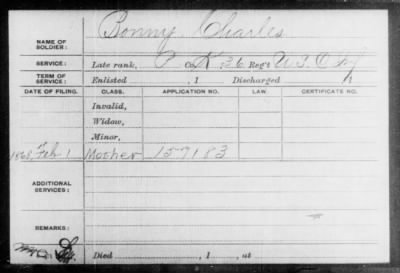 NAME OF SOLDIER: Bonny, Charles
SERVICE: Late rank, P Co. K, 36 Reg't U.S. C. Inf
TERM OF SERVICE: Enlisted , 1 Discharged , 1
DATE OF FILING. CLASS. APPLICATION NO. LAW. CERTIFICATE NO.
Invalid,
Widow,
Minor,
1868, Feb 1 Mother 159183
ADDITIONAL SERVICES:
REMARKS:
Died , 1 , at